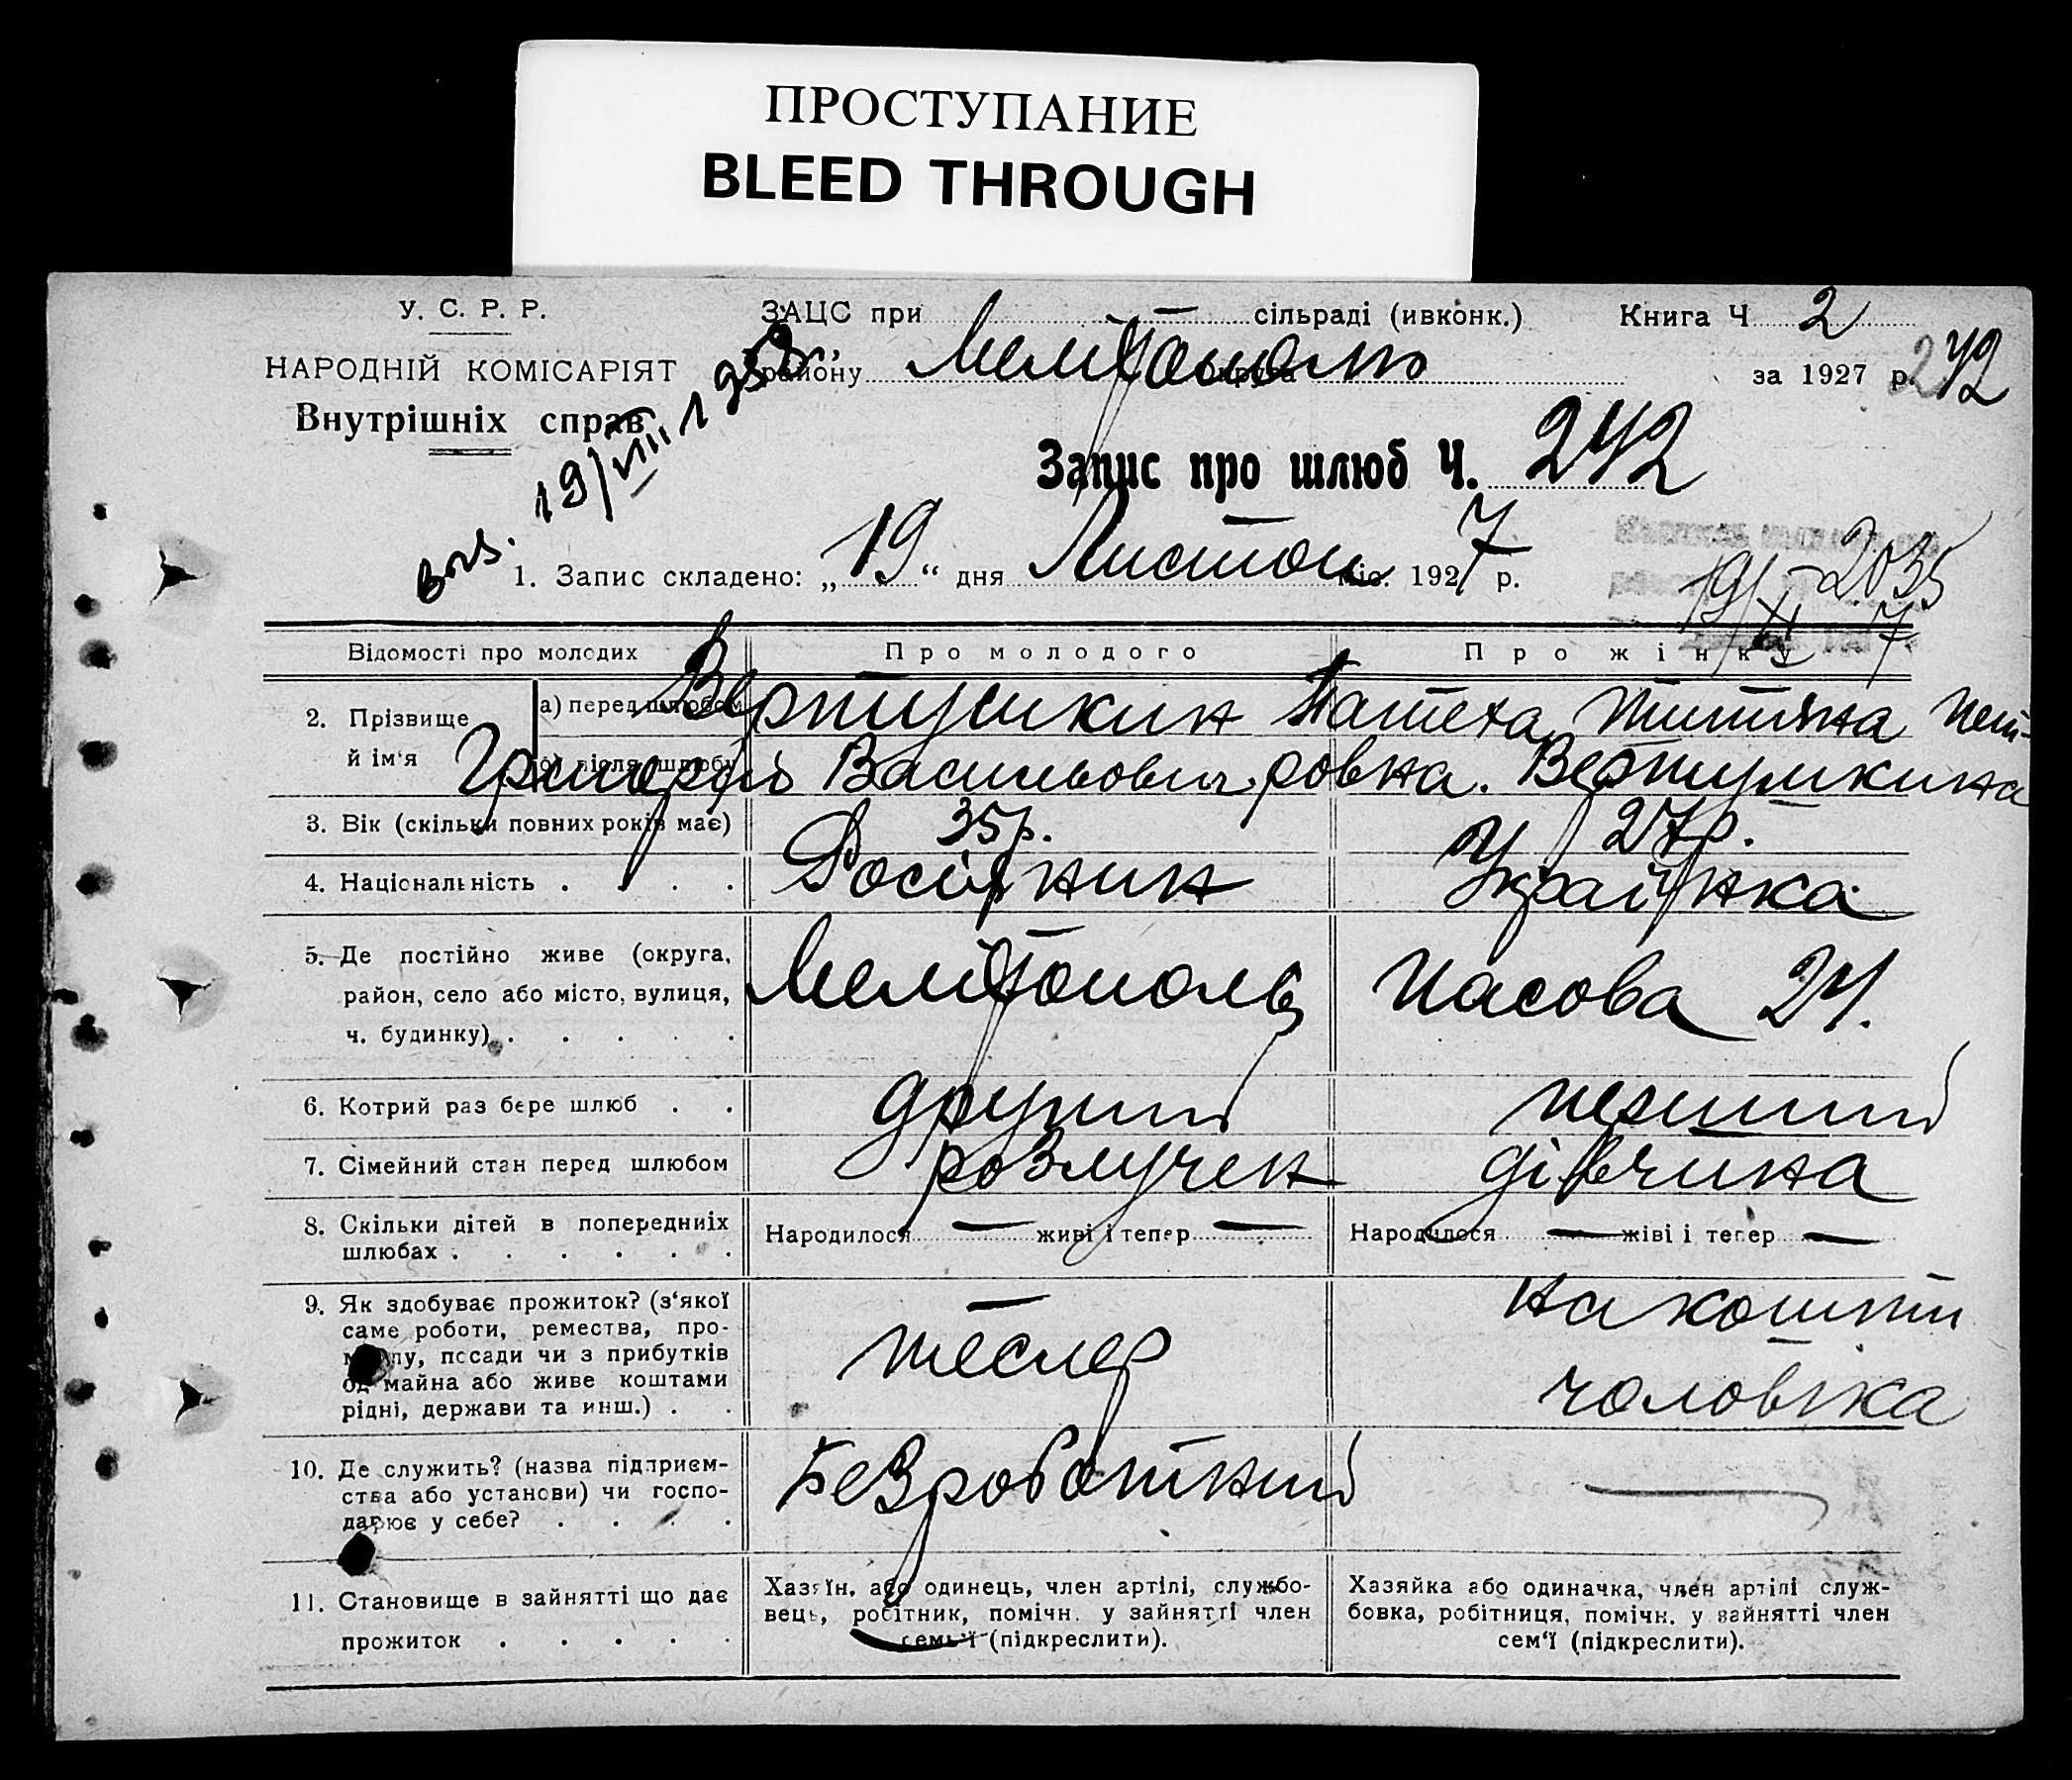 ПРОСТУПАНИЕ
BLEED THROUGH
У. С. Р. Р.
НАРОДНІЙ КОМІСАРІЯТ
Внутрішніх справ
ЗАЦС при сільраді (ивконк.)
району Мелітополь округа
Книга Ч 2
за 1927 р. 242
19/VIII 1958
Запис про шлюб Ч. 242
1. Запис складено: „19“ дня Листоп міс. 1927 р.
19/XI 7 2035
Відомості про молодих
Про молодого
Про жінку
2. Прізвище й ім‘я
а) перед шлюбом
б) після шлюбу
Вертушкин
Григорій Васильович
Тетяна Пет-
ровна. Вертушкина
3. Вік (скільки повних років має)
35р.
27р.
4. Національність . . . .
Росіянин
Українка
5. Де постійно живе (округа,
район, село або місто, вулиця,
ч. будинку) . . . . .
Мелітополь
24.
6. Котрий раз бере шлюб . .
другий
перший
7. Сімейний стан перед шлюбом
розлучен
дівчина
8. Скільки дітей в попередниіх
шлюбах . . . . . .
Народилося — живі і тепер —
Народилося — жіві і тепер —
9. Як здобуває прожиток? (з‘якої
саме роботи, ремества, про-
мислу, посади чи з прибутків
од майна або живе коштами
рідні, держави та инш.) . .
тесляр
на кошти
чоловіка
10. Де служить? (назва підприєм-
ства або установи) чи госпо-
дарює у себе? . . . .
Безроботний
—
11. Становище в зайнятті що дає
прожиток . . . . .
Хазяїн, або одинець, член артілі, службо-
вець, робітник, помічн. у зайнятті член
семь‘ї (підкреслити).
Хазяйка або одиначка, член артілі служ-
бовка, робітниця, помічн. у зайнятті член
сем‘ї (підкреслити).